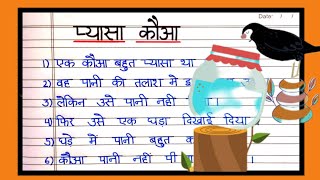 Date: / /
प्यासा कौआ
1) एक कौआ बहुत प्यासा था
2) वह पानी की तलाश में
3) लेकिन उसे पानी नही
4) फिर उसे एक घड़ा दिखाई दिया
5) घड़े में पानी बहुत
6) कौआ पानी नहीं पी